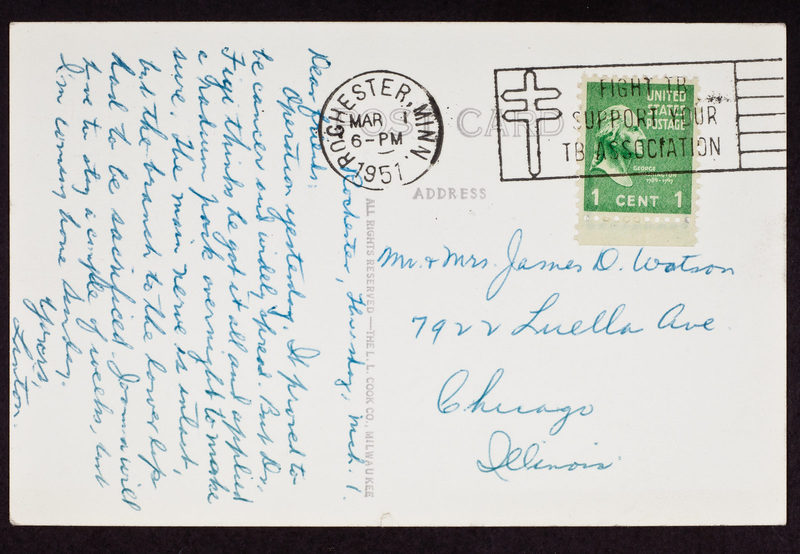 Rochester, Thursday, Mch. 1.
Dear Folks:
Operation yesterday. It proved to
be cancer and widely spread. But Dr.
Figi thinks he got it all and applied
a radium pack overnight to make
sure. The main nerve is intact,
but the branch to the lower lip
had to be sacrificed. Jonna will
have to stay a couple of weeks, but
I'm coming home Sunday.
Yours,
Linton.
POST CARD
ADDRESS
ROCHESTER, MINN.
MAR 1
6-PM
1951
FIGHT TB
SUPPORT YOUR
TB ASSOCIATION
UNITED
STATES
POSTAGE
GEORGE
WASHINGTON
1789-1797
1 CENT 1
ALL RIGHTS RESERVED—THE L. L. COOK CO., MILWAUKEE
Mr. & Mrs. James D. Watson
7922 Luella Ave.
Chicago
Illinois